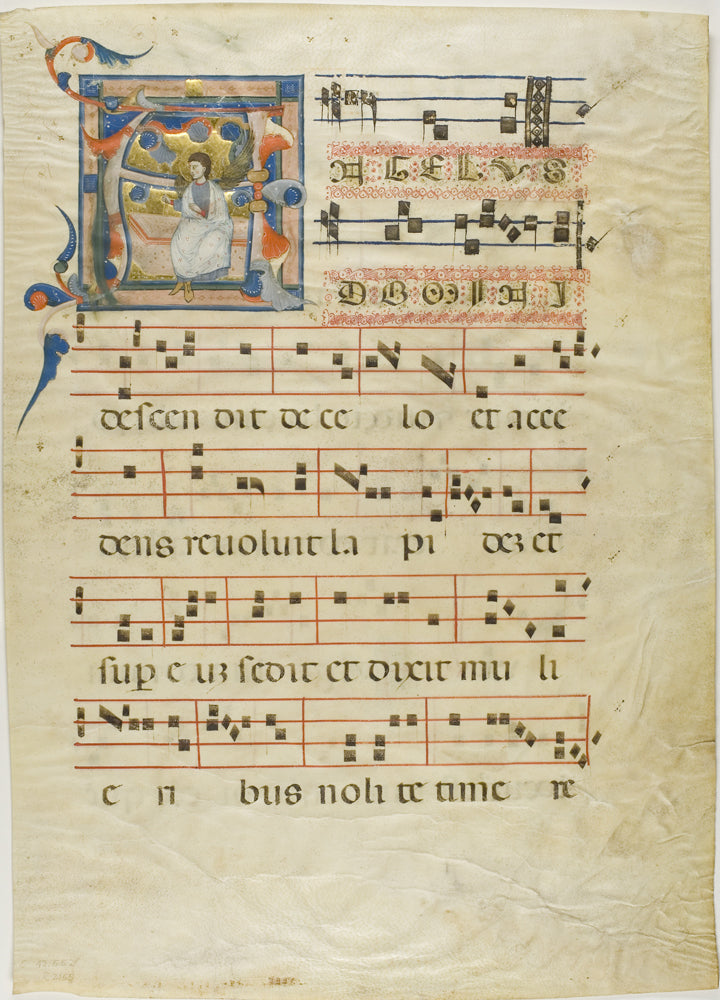 A NGELVS
DOMINI
descen dit de ce lo et acce
dens reuoluit la pi deʒ et
suꝑ e uʒ sedit et dixit mu li
e ri bus noli te time re